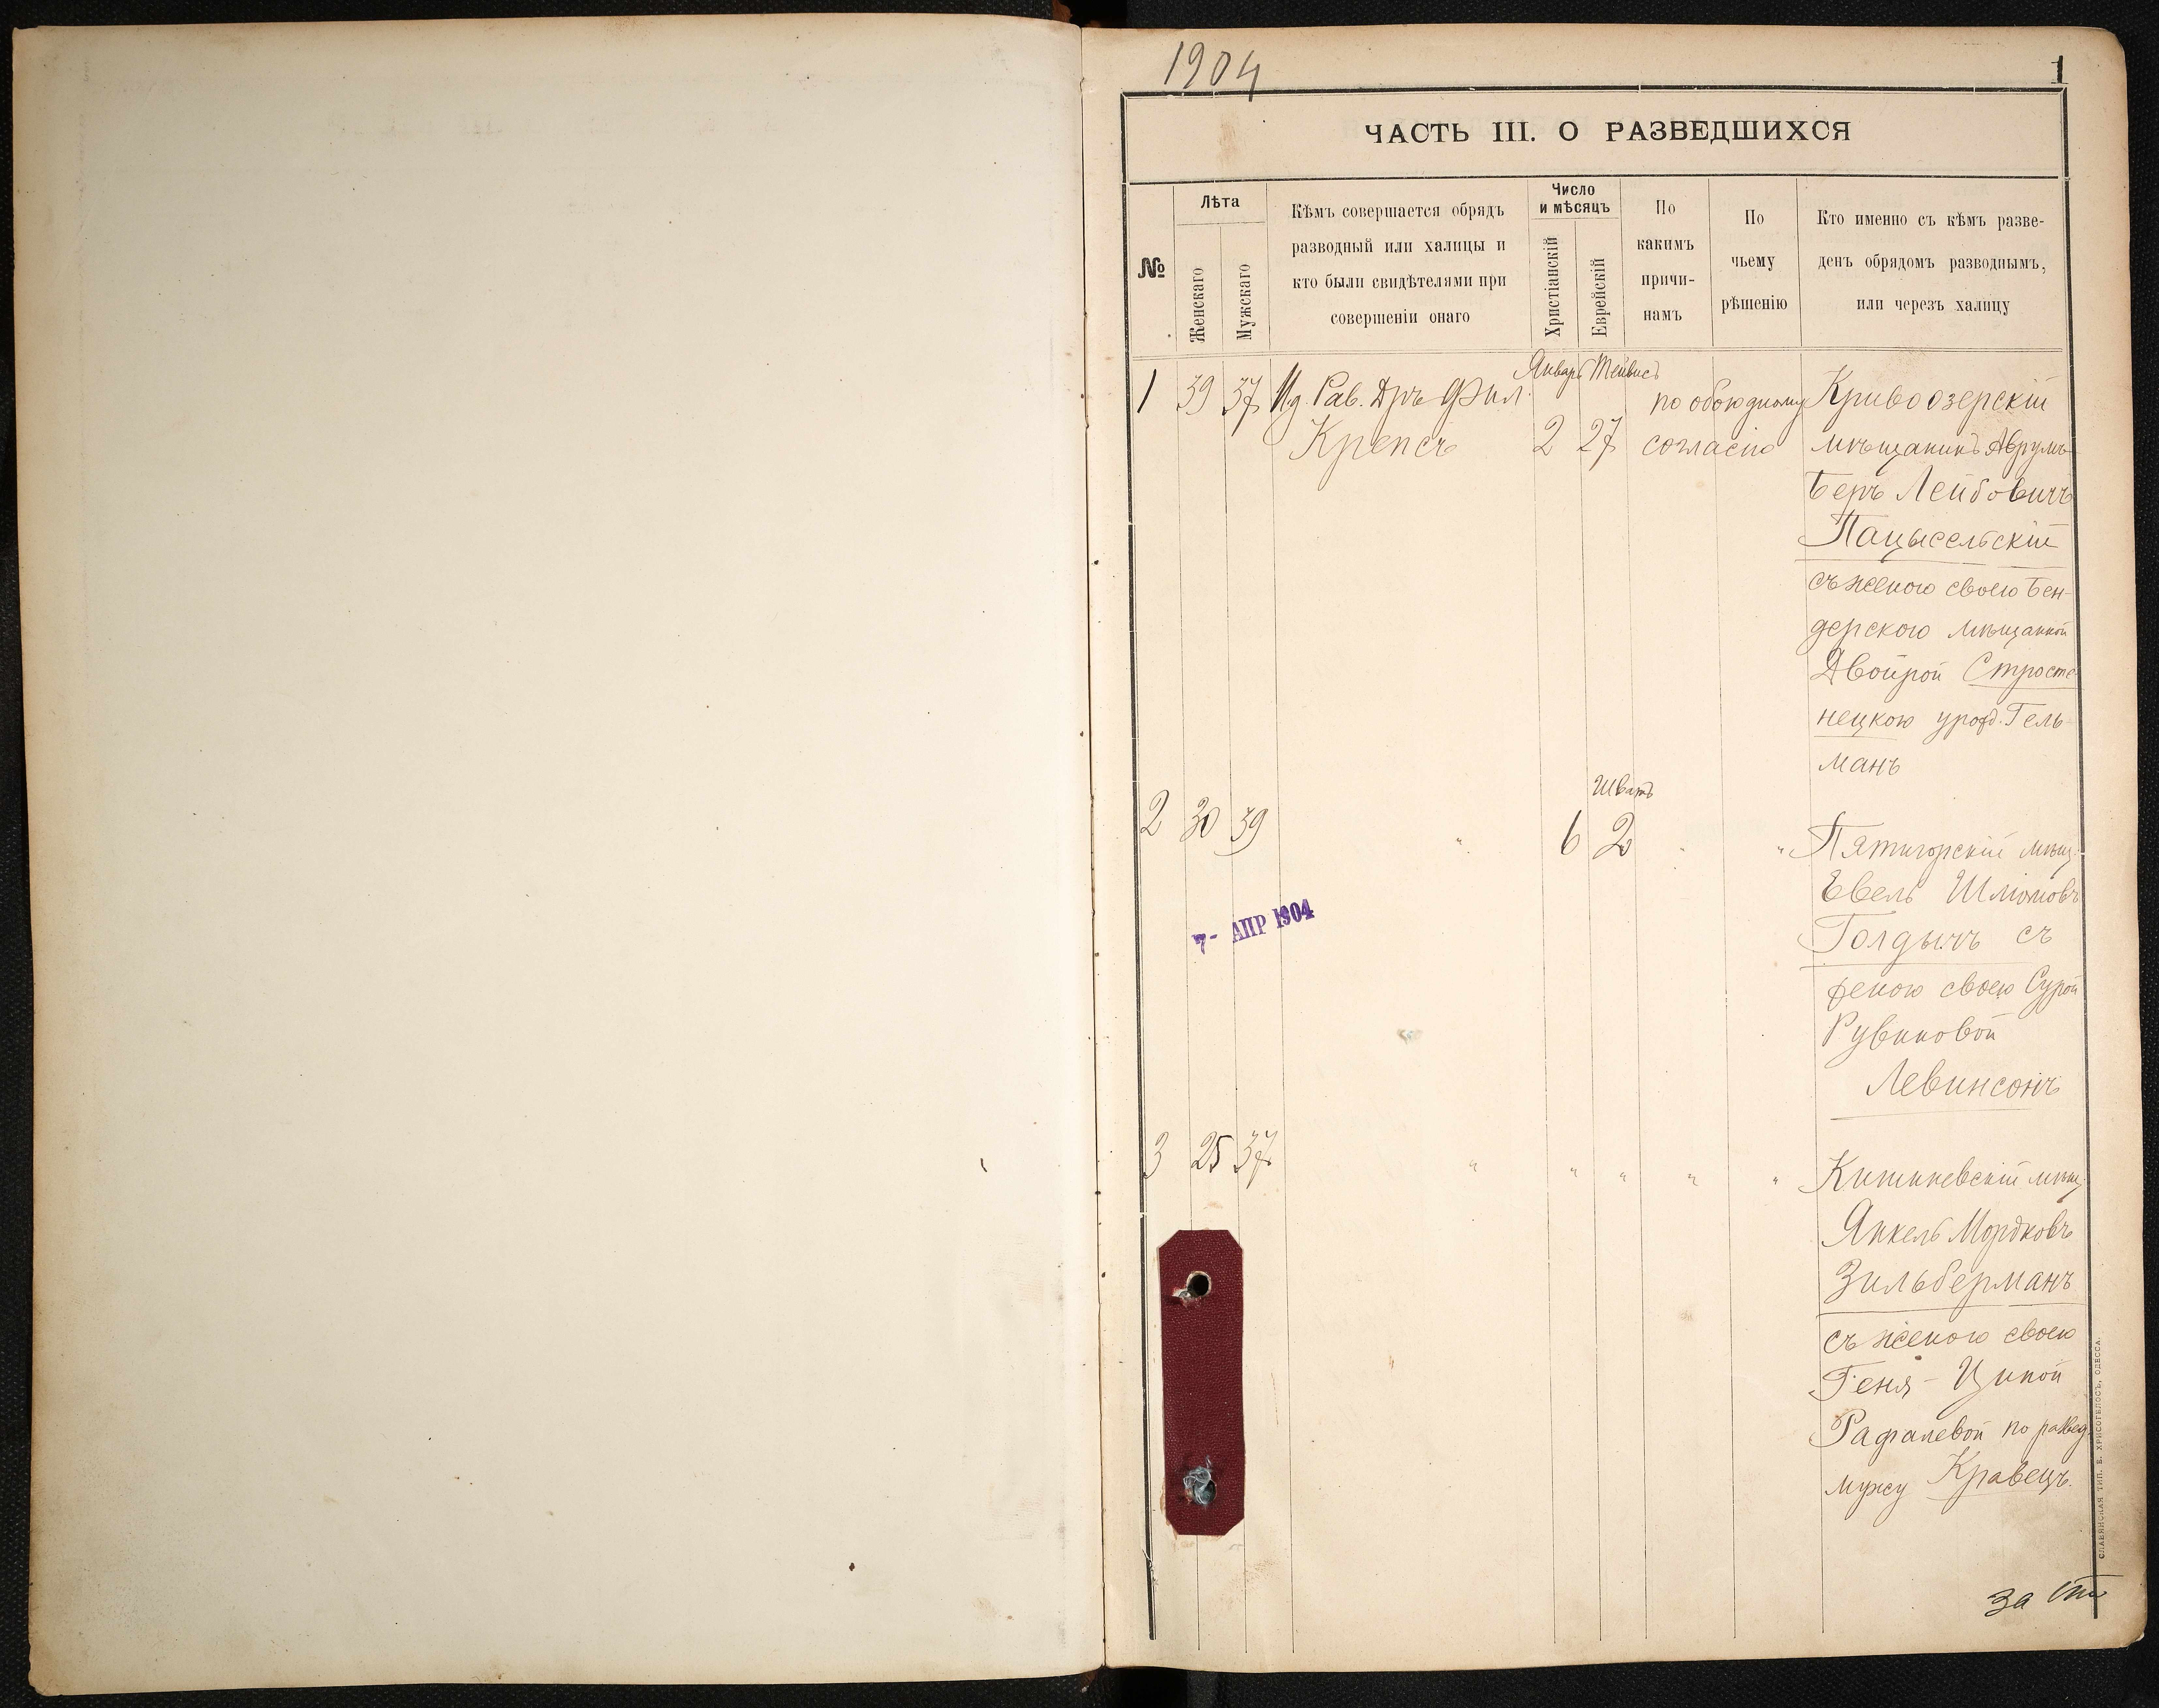 1904
1
ЧАСТЬ III. О РАЗВЕДШИХСЯ
№
Лѣта
Женскаго
Мужскаго
Кѣмъ совершается обрядъ
разводный или халицы и
кто были свидѣтелями при
совершеніи онаго
Число
и мѣсяцъ
Христіанскій
Еврейскій
По
какимъ
причи-
намъ
По
чьему
рѣшенію
Кто именно съ кѣмъ разве-
денъ обрядомъ разводнымъ,
или черезъ халицу
Январь Тейвисъ
1 39 37 И.д. Рав. Дръ Фил. по обоюдному Кривоозерскій
Крепсъ 2 27 согласію мѣщанинъ Аврумъ
Беръ Лейбовичъ
Пацысельскій
съ женою своею Бен-
дерскою мѣщанкой
Двойрой Стросте-
нецкою урожд. Гель-
манъ
Шватъ
2 30 39 " 6 2 " " Пятигорскій мѣщ.
Евель Шліомовъ
Голдычъ съ
женою своею Сурой
Рувиновой
Левинсонъ
7- АПР 1904
3 25 37 " " " " " Кишиневскій мѣщ.
Янкель Мордковъ
Зильберманъ
съ женою своею
Геня-Ципой
Рафалевой по развед.
мужу Кравецъ.
СЛАВЯНСКАЯ ТИП. Е. ХРИСОГЕЛОСЪ, ОДЕССА.
за